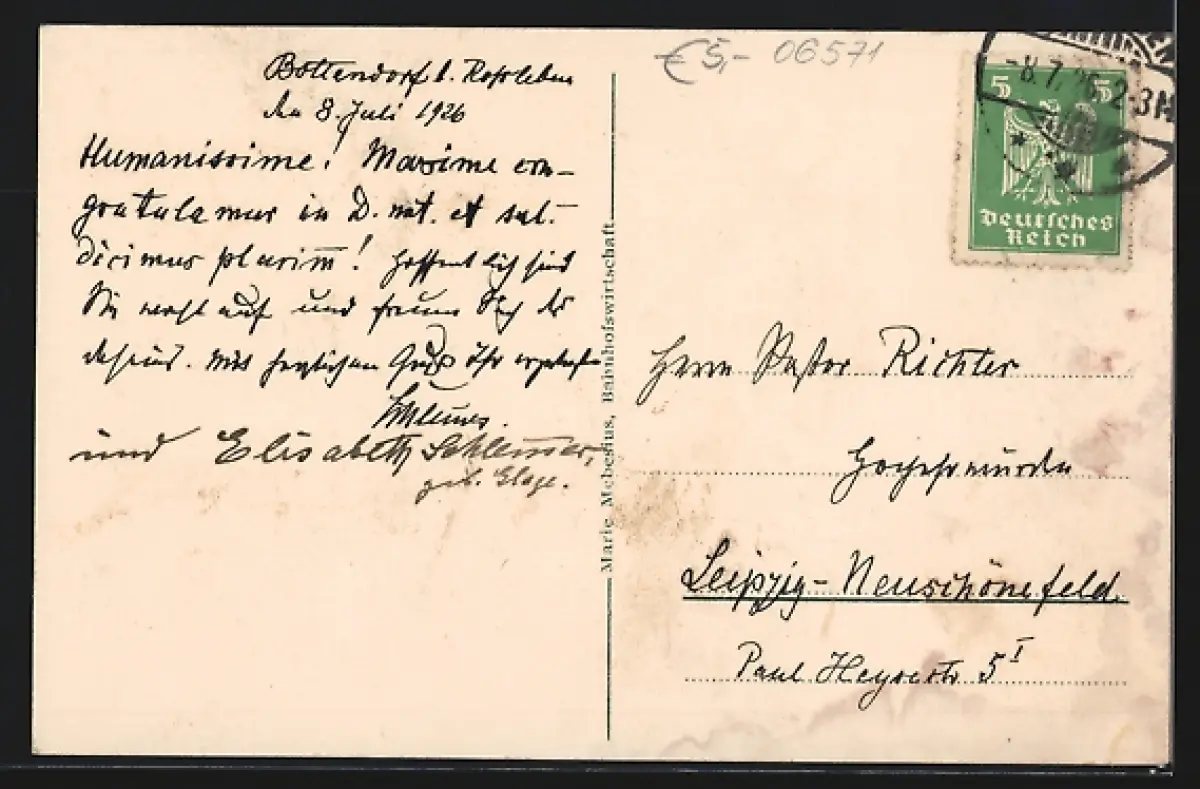 Bottendorf b. Rossleben
den 8. Juli 1926
Humanissime! Maxime con-
gratulamur in D. nat. et sal.
dicimus plurim̅! Hoffentlich sind
Sie wohl auf und freuen Sich des
Daseins. Mit herzlichem Gruß Ihr ergebener
und Elisabeth Schlemer,
geb.
Marie Mebesius, Bahnhofswirtschaft
€ 5,- 06571
-8.7.26. 2-3N
5 5
Deutsches
Reich
Herrn Pastor Richter
Hochehrwürden
Leipzig-Neuschönefeld.
Paul Heysestr 5 I